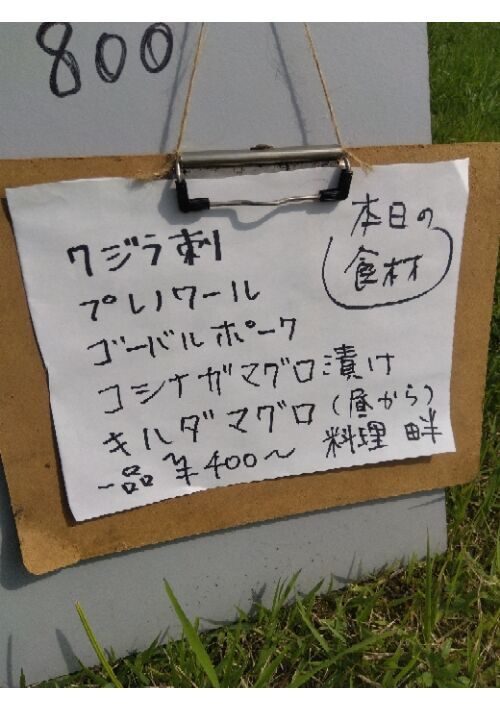 800
本日の
食材
クジラ刺
プレノワール
ゴーバルポーク
コシナガマグロ漬け
キハダマグロ(昼から)
一品 ¥400〜 料理 畔